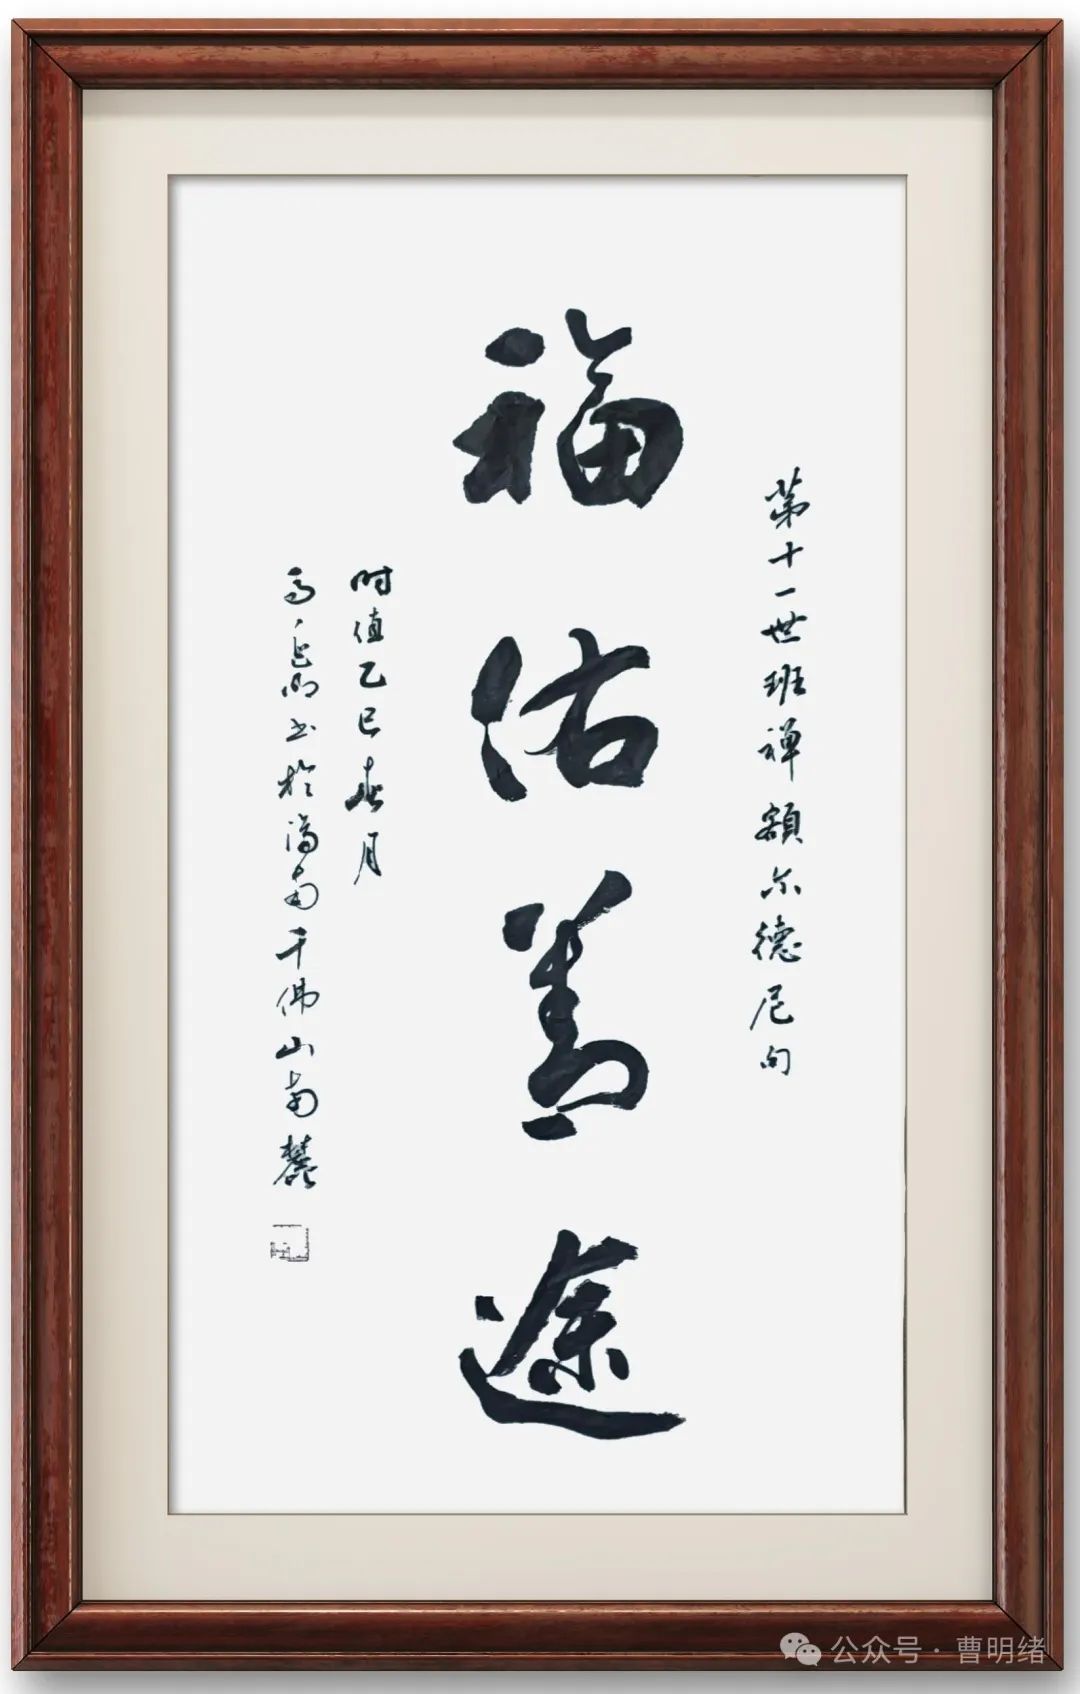 第十一世班禅额尔德尼句
福佑善途
时值乙巳春月
书於济南千佛山南麓
公众号·曹明绪